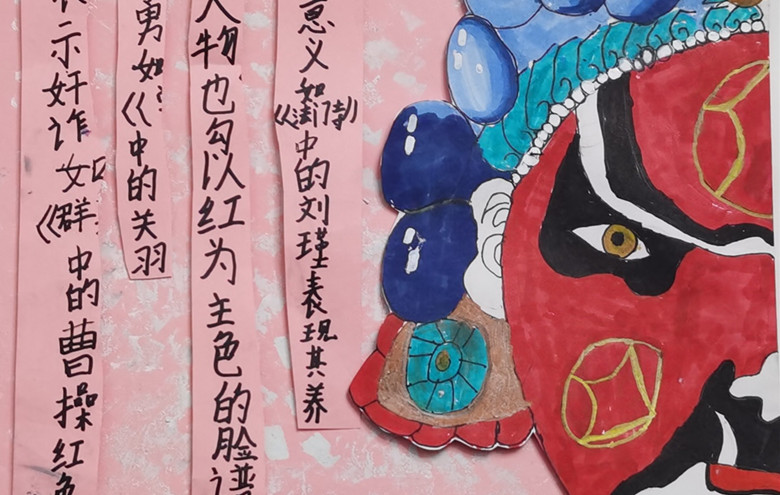 示奸诈如
《群中的曹操红色
勇如
《《中的关羽
人物也勾以红为主色的脸谱
意义如
《法门寺》中的刘瑾表现其养